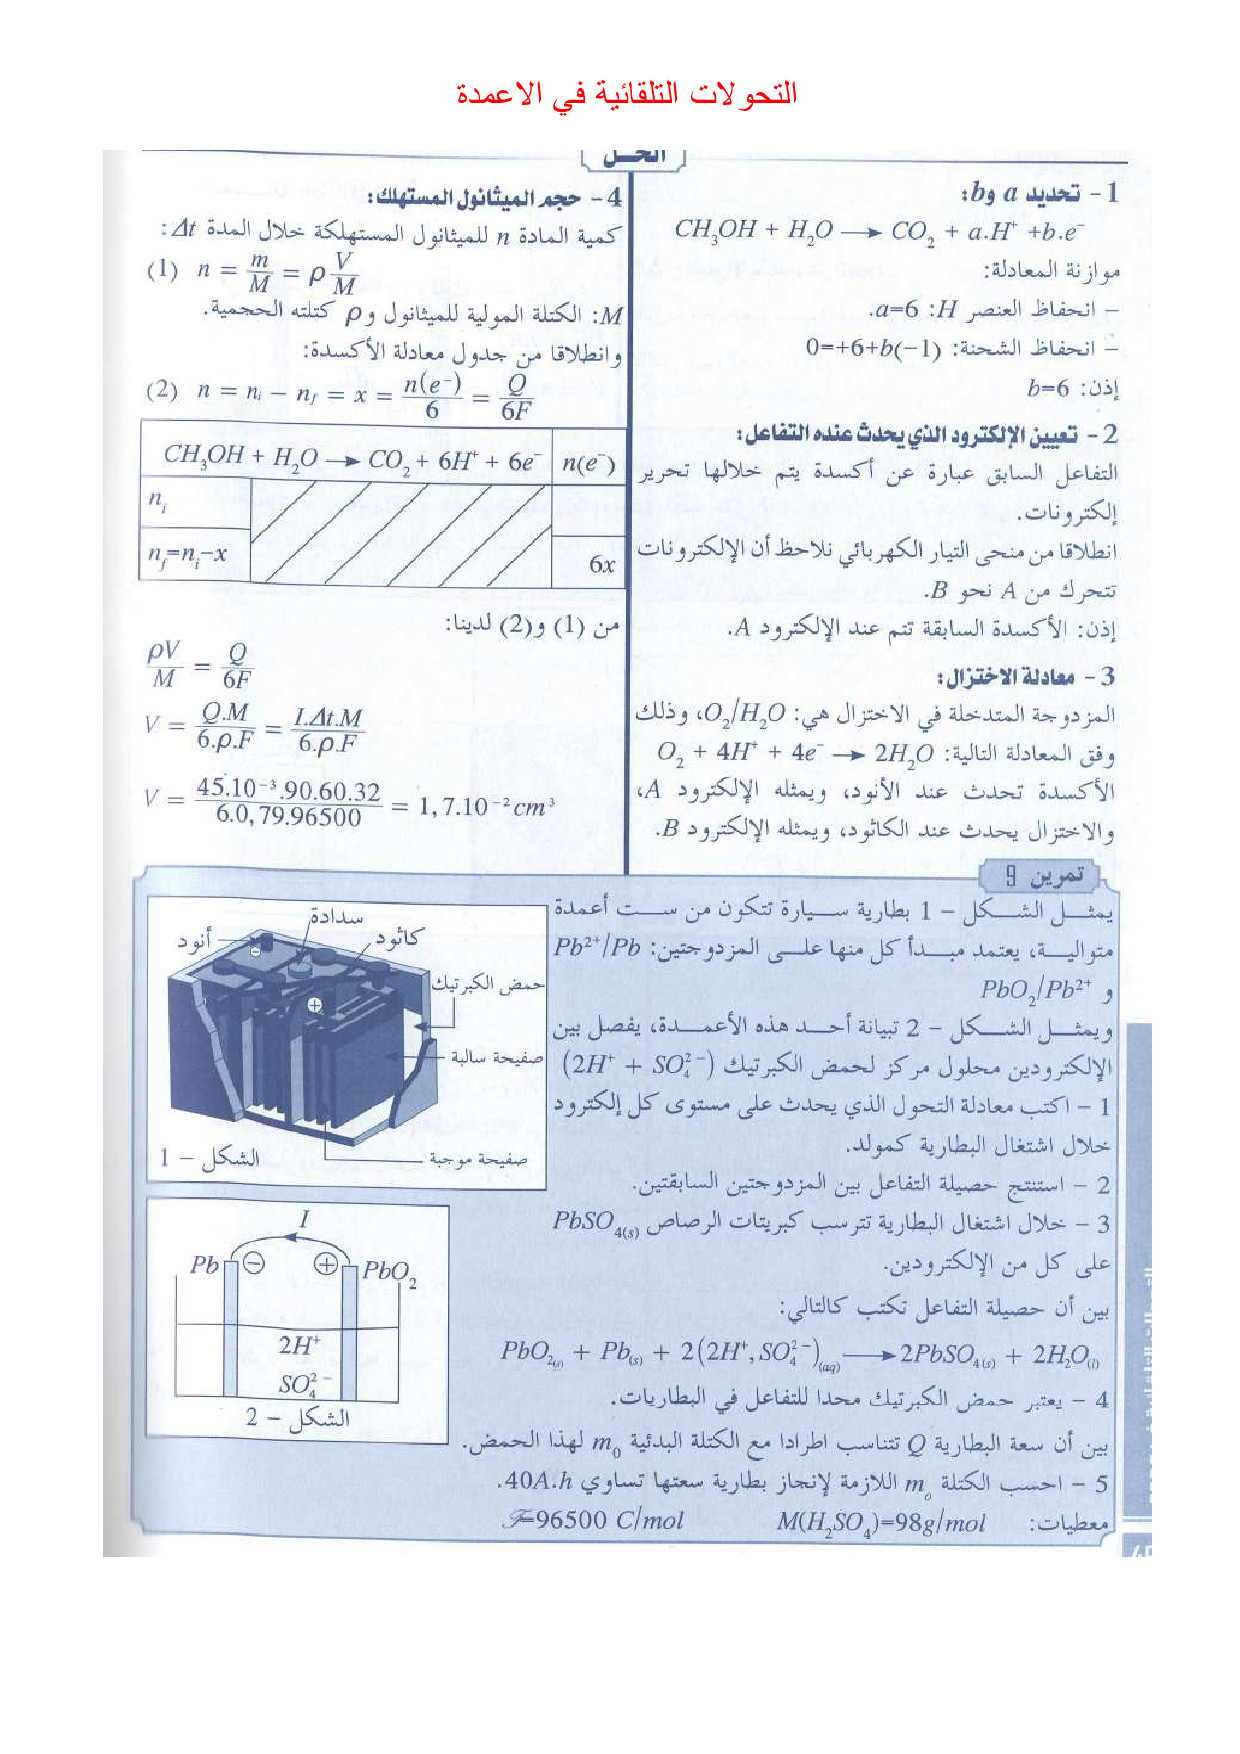 التحولات التلقائية في الاعمدة
الحل
1 - تحديد a وb:
CH₃OH + H₂O → CO₂ + a.H⁺ +b.e⁻
موازنة المعادلة:
– انحفاظ العنصر H: a=6.
– انحفاظ الشحنة: 0=+6+b(−1)
إذن: b=6
2 - تعيين الإلكترود الذي يحدث عنده التفاعل:
التفاعل السابق عبارة عن أكسدة يتم خلالها تحرير
إلكترونات.
انطلاقا من منحى التيار الكهربائي نلاحظ أن الإلكترونات
تتحرك من A نحو B.
إذن: الأكسدة السابقة تتم عند الإلكترود A.
3 - معادلة الاختزال:
المزدوجة المتدخلة في الاختزال هي: O₂/H₂O، وذلك
وفق المعادلة التالية: O₂ + 4H⁺ + 4e⁻ → 2H₂O
الأكسدة تحدث عند الأنود، ويمثله الإلكترود A،
والاختزال يحدث عند الكاثود، ويمثله الإلكترود B.
4 - حجم الميثانول المستهلك:
كمية المادة n للميثانول المستهلكة خلال المدة Δt:
(1) n = m/M = ρ V/M
M: الكتلة المولية للميثانول وρ كتلته الحجمية.
وانطلاقا من جدول معادلة الأكسدة:
(2) n = nᵢ − n_f = x = n(e⁻)/6 = Q/6F
CH₃OH + H₂O → CO₂ + 6H⁺ + 6e⁻ n(e⁻)
nᵢ
n_f=nᵢ−x 6x
من (1) و(2) لدينا:
ρV/M = Q/6F
V = Q.M/6.ρ.F = I.Δt.M/6.ρ.F
V = 45.10⁻³.90.60.32/6.0,79.96500 = 1,7.10⁻²cm³
تمرين 9
يمثل الشكل – 1 بطارية سيارة تتكون من ست أعمدة
متوالية، يعتمد مبدأ كل منها على المزدوجتين: Pb²⁺/Pb
و PbO₂/Pb²⁺
ويمثل الشكل – 2 تبيانة أحد هذه الأعمدة، يفصل بين
الإلكترودين محلول مركز لحمض الكبرتيك (2H⁺ + SO₄²⁻)
1 – اكتب معادلة التحول الذي يحدث على مستوى كل إلكترود
خلال اشتغال البطارية كمولد.
2 – استنتج حصيلة التفاعل بين المزدوجتين السابقتين.
3 – خلال اشتغال البطارية تترسب كبريتات الرصاص PbSO₄(s)
على كل من الإلكترودين.
بين أن حصيلة التفاعل تكتب كالتالي:
PbO₂(s) + Pb(s) + 2(2H⁺, SO₄²⁻)(aq) → 2PbSO₄(s) + 2H₂O(l)
4 – يعتبر حمض الكبرتيك محدا للتفاعل في البطاريات.
بين أن سعة البطارية Q تتناسب اطرادا مع الكتلة البدئية m₀ لهذا الحمض.
5 – احسب الكتلة m₀ اللازمة لإنجاز بطارية سعتها تساوي 40A.h.
معطيات: M(H₂SO₄)=98g/mol ℱ=96500 C/mol
سدادة
أنود
كاثود
⊖
حمض الكبرتيك
⊕
صفيحة سالبة
صفيحة موجبة
الشكل – 1
I
Pb ⊖ ⊕ PbO₂
2H⁺
SO₄²⁻
الشكل – 2